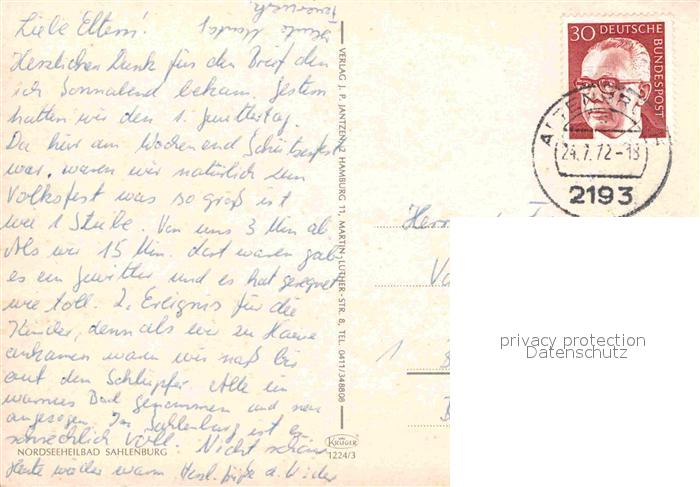 Liebe Eltern!
heute 1 Monat
Feuerwerk
Herzlichen Dank für den Brief den
ich Sonnabend bekam. Gestern
hatten wir den 1. Gewittertag.
Da hier am Wochenend Schützenfest
war, waren wir natürlich zum
Volksfest was so groß ist
wie 1 Stube. Von uns 3 Min ab
Als wir 15 Min. dort waren gab
es ein Gewitter und es hat geregnet
wie toll. 2. Ereignis für die
Kinder, denn als wir zu Hause
ankamen waren wir naß bis
auf den Schlüpfer. Alle ein
warmes Bad genommen und neu
angezogen. In Sahlenburg ist es
schrecklich voll. Nicht schön
Heute wieder warm Herzl. Grüße a. Kinder
NORDSEEHEILBAD SAHLENBURG
VERLAG J. P. JANTZEN, 2 HAMBURG 11, MARTIN-LUTHER-STR. 8, TEL. 0411/348808
KRÜGER
1224/3
30 DEUTSCHE
BUNDESPOST
24.7.72-18
2193
Herr
1
privacy protection
Datenschutz